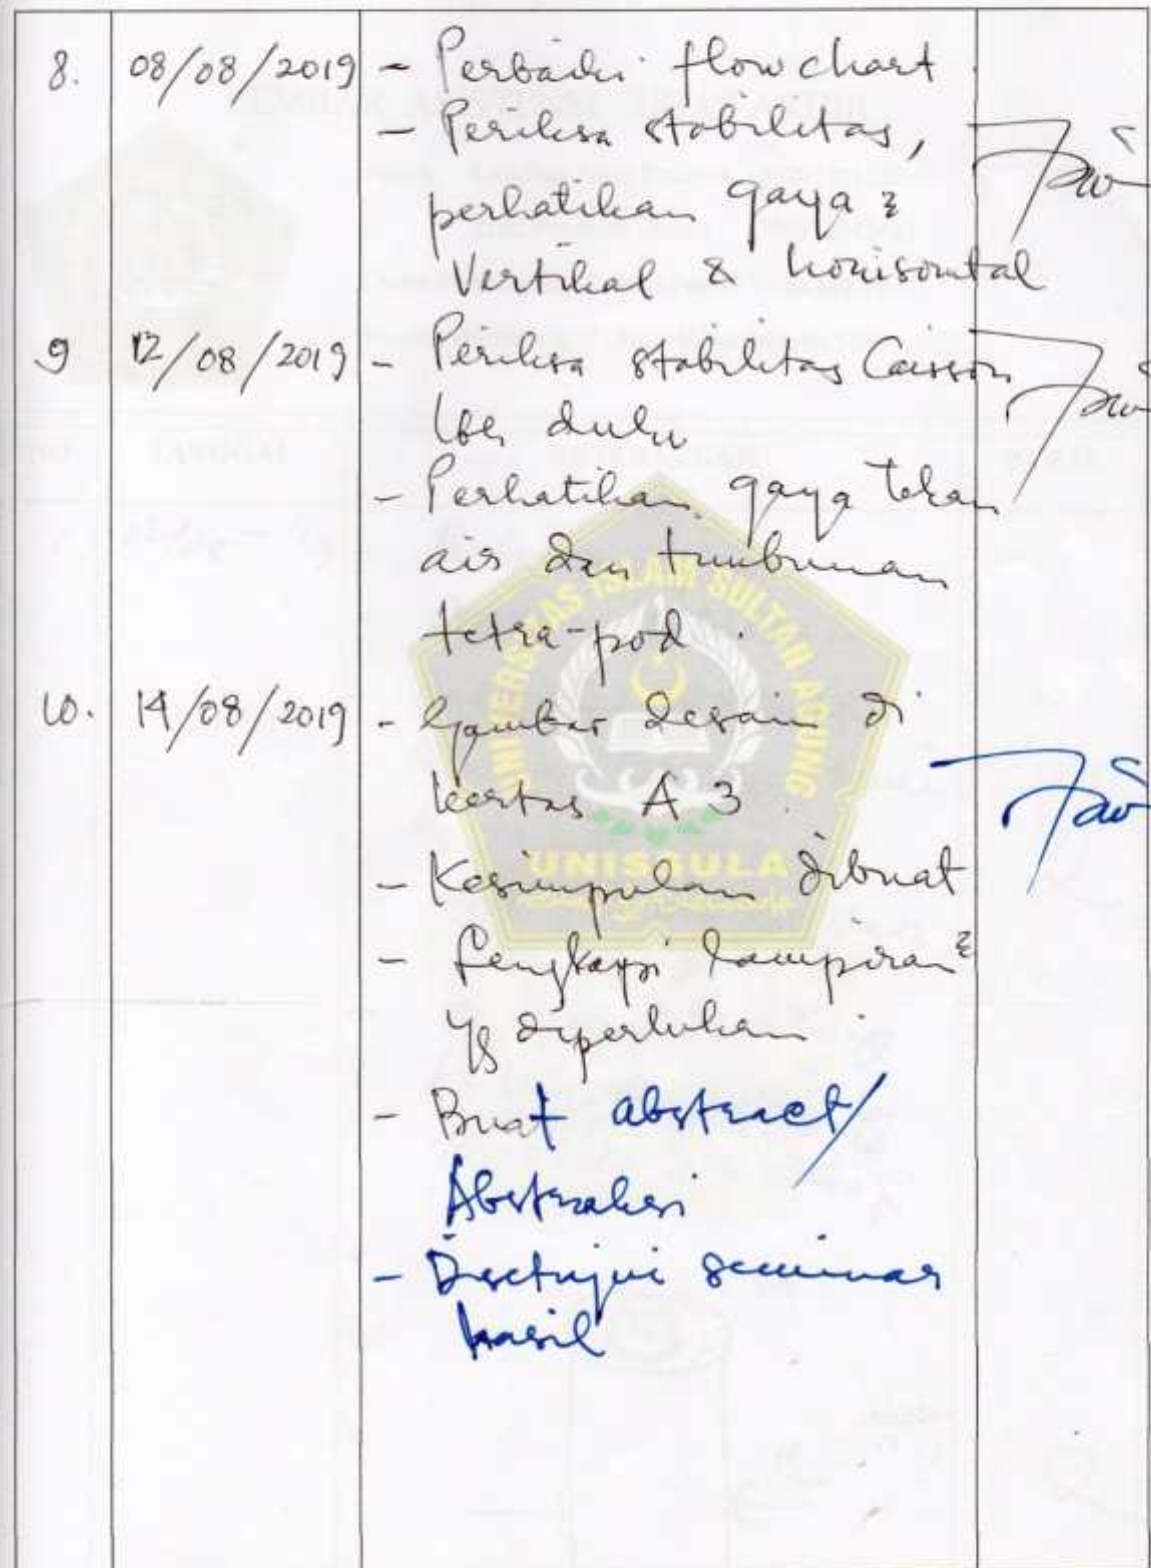 8. 08/08/2019 - Perbaiki flow chart
- Periksa stabilitas,
perhatikan gaya 2
Vertikal & horisontal
9 12/08/2019 - Periksa stabilitas Caisson
dulu
- Perhatikan gaya tekan
air dan timbunan
tetra-pod.
10. 14/08/2019 - Gambar desain di
kertas A3.
- Kesimpulan dibuat
- Lengkapi lampiran 2
yg diperlukan
- Buat abstract/
Abstraksi
- Disetujui seminar
hasil
UNIVERSITAS ISLAM SULTAN AGUNG
UNISSULA